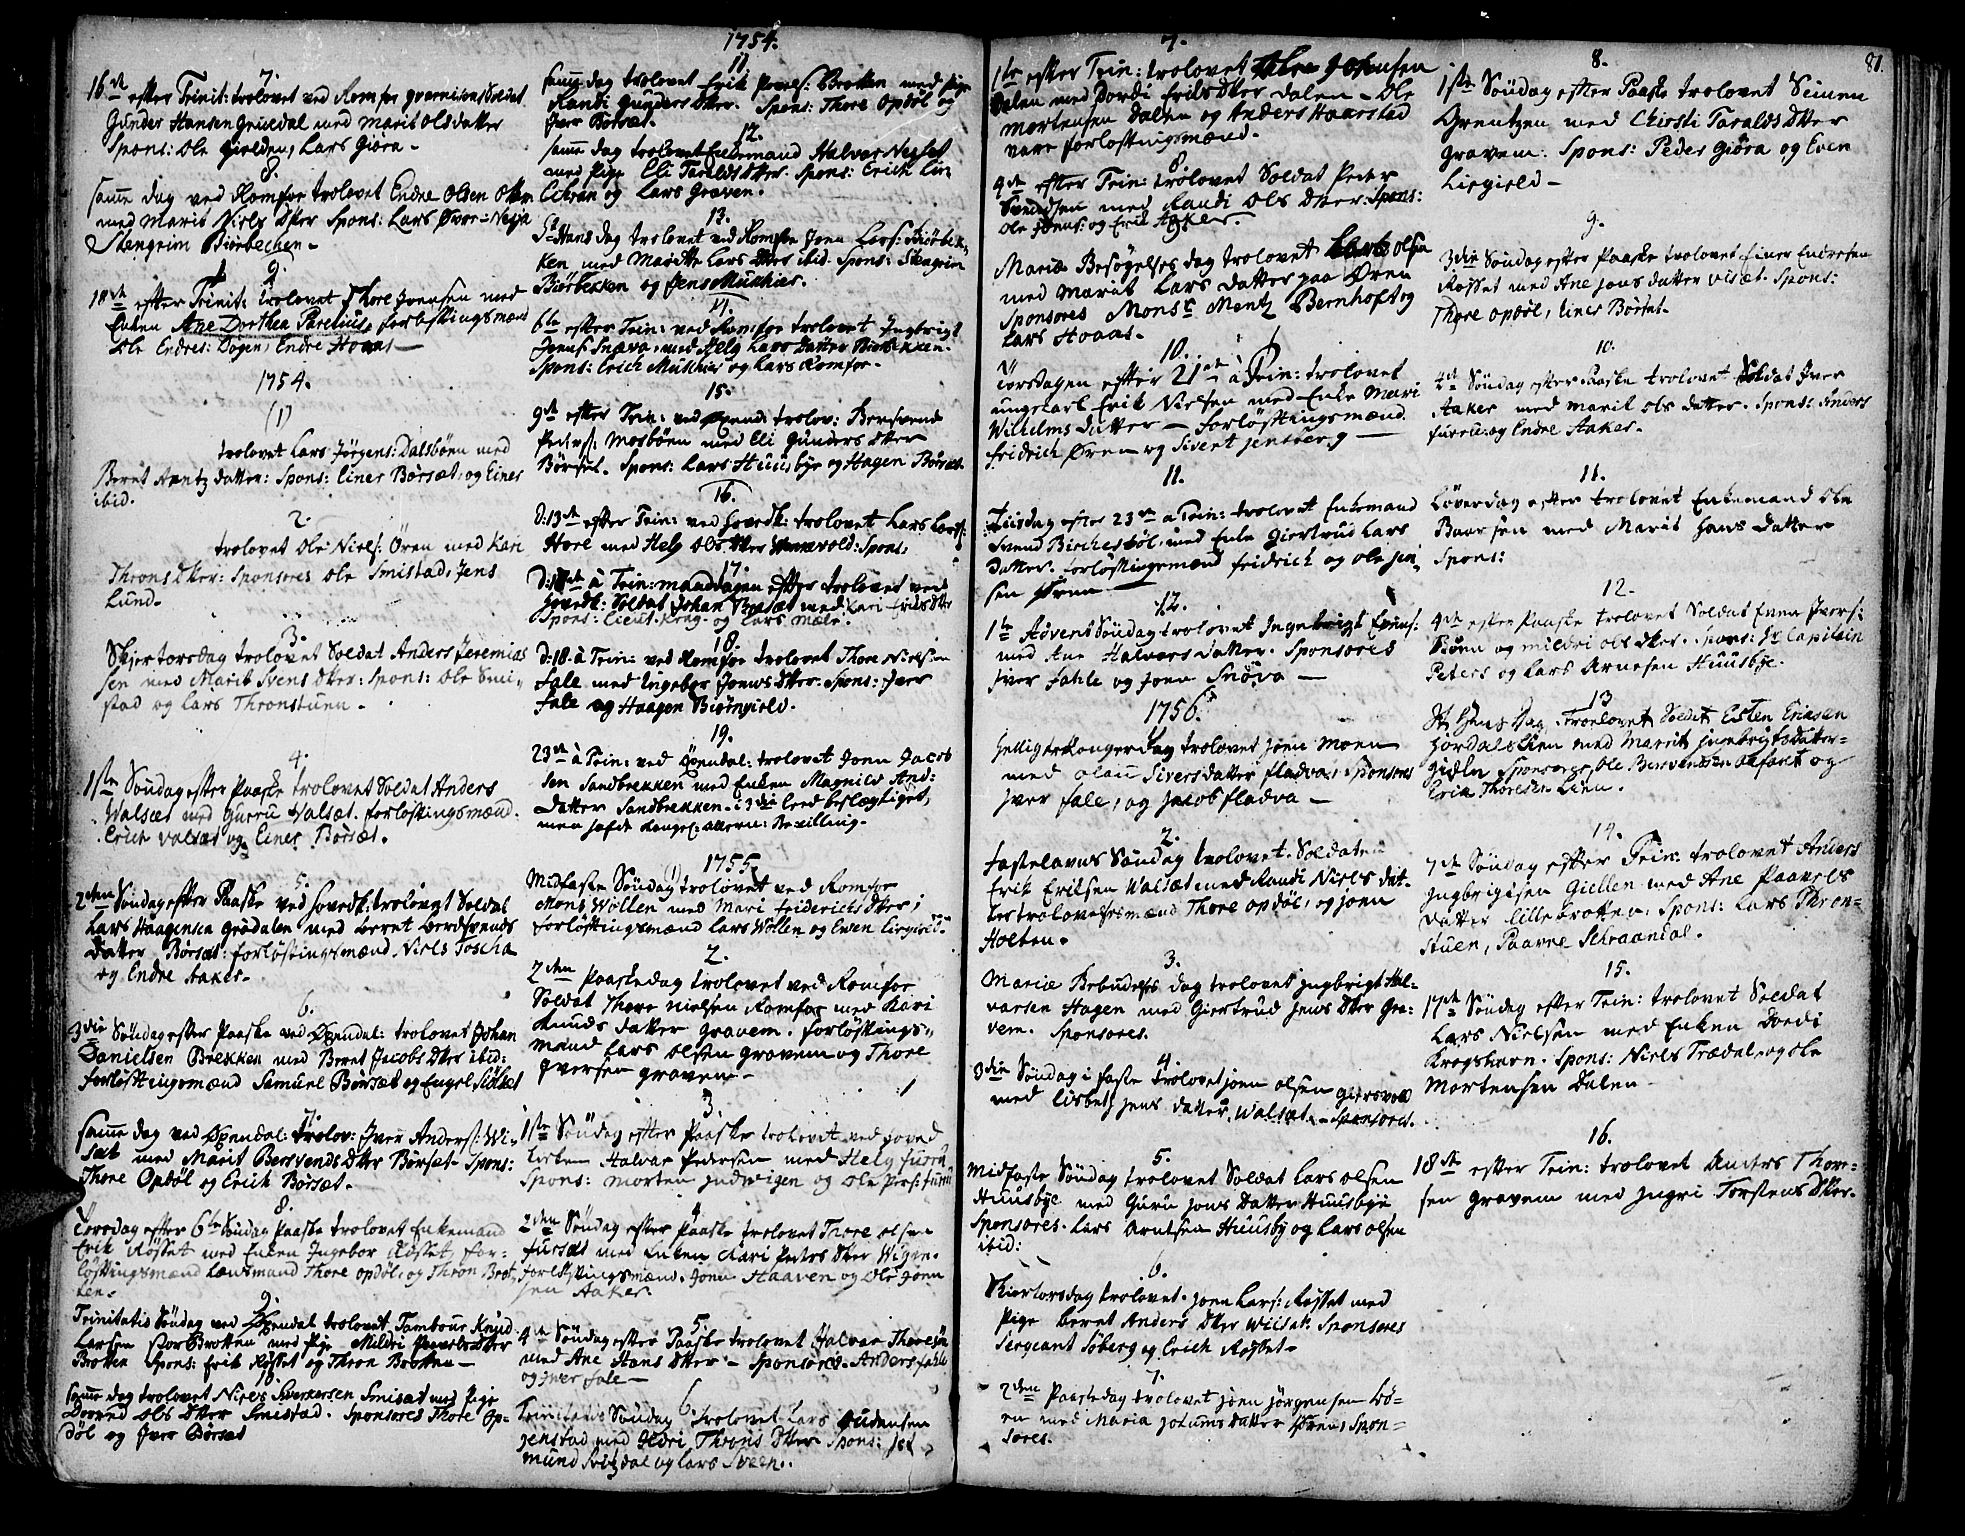 7.
16de efter Trinit: trolovet ved Romfoe gvarnisons Soldat
Gunder Hansen Grüedal med Marit Olsdatter
Spons: Ole Gielden, Lars Giöra -
8.
samme dag ved Romfoe trolovet Endre Olsen
med Marit Niels Dtter Spons: Lars Övre-Nesja
Stengrim Biörbechen -
9.
18de efter Trinit: trolovet Thore Joensen med
Enken Ane Dorthea Paretius, forløftningsmænd
Ole Endres: Dogen, Endre Hoaas -
1754.
(1)
trolovet Lars Jörgens: Dalsböen med
Beret Arentz datter: Spons: Einer Börsæt, og Einer
ibid.
2.
trolovet Ole Niels: Ören med Kari
Throns Dtter: Sponsores Ole Smistad, Jens
Lund.
3.
Skiertorsdag trolovet Soldat Anders Jeremias
sen med Marit Svens Dtter: Spons: Ole Smi,
stad og Lars Thronstuen -
4.
1ste Söndag efter Paaske trolovet Soldat Anders
Walsæt med Gurru Walsæt. forløftningsmænd
Erich Valsæt og Einer Börsæt.
5.
2den Söndag efter Paaske ved hovedk: trolovet Soldat
Lars Haagensen Grödalen med Beret Berdsvends
Datter Börsæt: forløftningsmænd Niels Toscha
og Endre Aaker -
6.
3die Söndag efter Paaske ved Öxendal: trolovet Johan
Danielsen Brekken med Beret Jacobs Dtter ibid:
forløftningsmænd Samuel Börsæt og Engel
7.
samme dag ved Öxendal: trolov: Iver Anders: Wi,
sæt med Marit Bersvends Dtter Börsæt - Spons:
Thore Opdöl og Erich Börsæt.
8.
Torsdag efter 6te Söndag Paaske trolovet Enkemand
Erik Röstet med Enken Ingebor Röstet, for-
løftningsmænd Lænsmand Thore Opdöl, og Thron Brot,
ten.
9.
Trinitatis Söndag ved Öxendal trolovet Tambour Knud
Larsen Stor Brotten med Pige Mildri Povels Dtter
Brotten Spons: Erik Röstet og Thron Brotten -
10.
samme dag trolovet Niels Siverensen Smisæt med Pige
Dorred Ols Dtter Smestad. Sponsores Thore Op-
döl og Iver Börsæt
1754.
11.
samme dag trolovet Erik Povels: Brotten med Pige
Randi Gunders Dtter. Spons: Thore Opdöl og
Iver Börsæt.
12.
samme dag trolovet Enkemand Halvar Nesset
med Pige Eli Taralds Dtter. Spons: Erich
og Lars Graven.
13.
St Hans dag trolovet ved Romfoe Joen Lars: Biörbek-
ken med Marette Lars Dtter ibid. Spons: Stengrim
Biörbekken og Jens Mükhier.
14.
6te efter Trin: ved Romfoe trolovet Ingbrigt
Jons: Snöva, med Helg Lars Datter Biörbekken.
Spons: Erich Mükhier og Lars Romfoe -
15.
9de efter Trin: ved Öxend: trolov: Bersvend
Peders: Mosböen med Eli Gunders Dtter
Börsæt. Spons: Lars Huusbye og Hagen Börsæt.
16.
D: 13de efter Trin: ved hovedk: trolovet Lars Lars:
Hore med Helg Ols Dtter Spons:
17.
à Trin: mandagen efter trolovet ved
hovedk: Soldat Johan Börsæt med Kari Eriks Dtter
Spons: Lieut. Krag - og Lars Mæle.
18.
D: 18. à Trin: ved Romfoe trolovet Thore Nielsen
Fale med Ingebor Joens Dtter. Spons: Iver
Fale og Haagen Biörngield.
19.
23de à Trin: ved Öxendal: trolovet Joen Jacob
sen Sandbrekken med Enken Magnild And:
Datter Sandbrekken - i 3die Leed beslægtiget,
men hafde Konge: allern: Bevilling.
1755.
1
Midfaste Söndag trolovet ved Romfoe
Mons Wollen med Mari Friderichs Dtter;
forløftningsmænd Lars Wollen og Even Liegield.
2.
2den Paaskedag trolovet ved Romfoe
Soldat Thore Nielsen Romfoe med Kari
Knuds datter Gravem. forløftnings,
mænd Lars Olsen Gravem og Thore
Iversen Gravem -
3.
1ste Söndag efter Paaske trolovet ved hoved
kirken Halvar Pedersen med Helg Furru
Spons: Morten Jndvigen og Ole Pers: Furru
4
2den Söndag efter Paaske trolovet Thore Olsen
Fursæt med Enken Kari Peders Dtter Wigen.
forløftningsmænd. Joen Haaven og Ole Joen
sen Aaker.
5.
4de Söndag efter Paaske trolovet Halvar Thoresön
med Ane Hans Dtter - Sponsores. Anders Fahle
og Iver Fale -
6.
Trinitatis Söndag trolovet Lars Audensen
Jenstad med Ildri Throns Dtter Spons:
mund Svitzdal og Lars Sveen.
7.
1ste efter Trin: trolovet Johnsen
Dalen med Dordi Eriks Dtter Dalen - Ole
Mortensen Dalen og Anders Haarstad
vare forløftningsmænd.
8
9de efter Trin: trolovet Soldat Peter
Svendsen med Randi Ols Dtter: Spons:
Ole Joens: og Erik Aaker.
9.
Mariæ Besögelses dag trolovet Lars Olsen
med Marit Lars Datter paa Ören
Sponsores Monsr Mentz Bernhoft og
Lars Hoaas -
10.
Torsdagen efter 21de à Trin: trolovet
ungkarl Erik Nielsen med Enke Mari
Wilhelms Datter - forløftningsmænd
Fridrich Ören og Sivert Jensberg -
11.
Tiisdag efter 23de a Trin: trolovet Enkemand
Svend Bircherböl, med Enke Giertrud Lars
Datter. forløftningsmænd Fridrich og Ole Jen,
sen Ören -
12.
1te Advent Söndag trolovet Ingebrigt Evens:
med Ane Halvors Datter. Sponsores
Iver Fahle og Joen Snöva -
1756.
1
Hellig tre Konger Dag trolovet Joen Moen
med Olau Siversdatter Fladvæ, Sponsores
Iver Fale, og Jacob Fladva -
2.
Fastelavns Söndag trolovet Soldaten
Erik Eriksen Walsæt med Randi Niels Dat-
ter trolovelsesmænd Thore Opdöl, og Joen
Holten.
3.
Mariæ Bebudelses dag trolovet Ingbrigt Hal-
varsen Hagen med Giertrud Jens Dtter Gra-
vem. Sponsores.
4.
3die Söndag i Faste trolovet Joen Olsen Giersvold
med Lisbet Jens Datter, Walsæt - Sponsores.
5.
Midfaste Söndag trolovet Soldat Lars Olsen
Huusbye med Guru Jons Datter Huusbye
Sponsores. Lars Arntsen Huusby og Lars Olsen
ibid:
6.
Skiertorsdag trolovet. Joen Lars: Röstet med
Pige Beret Anders Dtter Wiisæt. Sponsores
Sergeant Söberg og Erich Röstet -
7.
2den Paaskedag trolovet Joen Jörgensen Lö-
en med Maria Johans Datter Ören, Spon-
sores.
81.
8.
1ste Söndag efter Paaske trolovet Seimen
Grentzen med Chirsti Taralds Dtter
Gravem. Spons: Peder Giöra og Even
Liegield -
9.
3die Söndag efter Paaske trolovet Einer Endresen
Röstet med Ane Jons datter Visæt. Spons:
Thore Opdöl, Einer Börset -
10.
4de Söndag efter Paaske trolovet Soldat Iver
Aaker med Marit Ols Datter. Spons: Anders
Furru og Endre Aaker -
11.
Löverdag efter trolovet Enkemand Ole
Baarsen med Marit Hans Datter
Spons:
12.
4de efter Paaske trolovet Soldat Even Ivers:
og Mildri Ols Dtter. Spons: Hr Capitain
Peters og Lars Arnesen Huusbye.
13
St Hans Dag trolovet Soldat Esten Eriksen
Hordals Lien med Marrit Ingebrigtsdatter
Gieeln Sponsores Ole Bersvendsen og
Erik Thoresen Lien.
14.
7de Söndag efter Trin: trolovet Anders
Ingbrigtsen Giellen med Ane Paavels
Datter Lillebrotten, Spons: Lars Thron-
stuen, Paavel Schraandal.
15.
17de Söndag efter Trin: trolovet Soldat
Lars Nielsen med Enken Dordi
Krogshavn. Spons: Niels Trædal, og Ole
Mortensen Dalen -
16.
18de efter Trin: trolovet Anders Thore-
sen Gravem med Ingri Torstens Dtter.